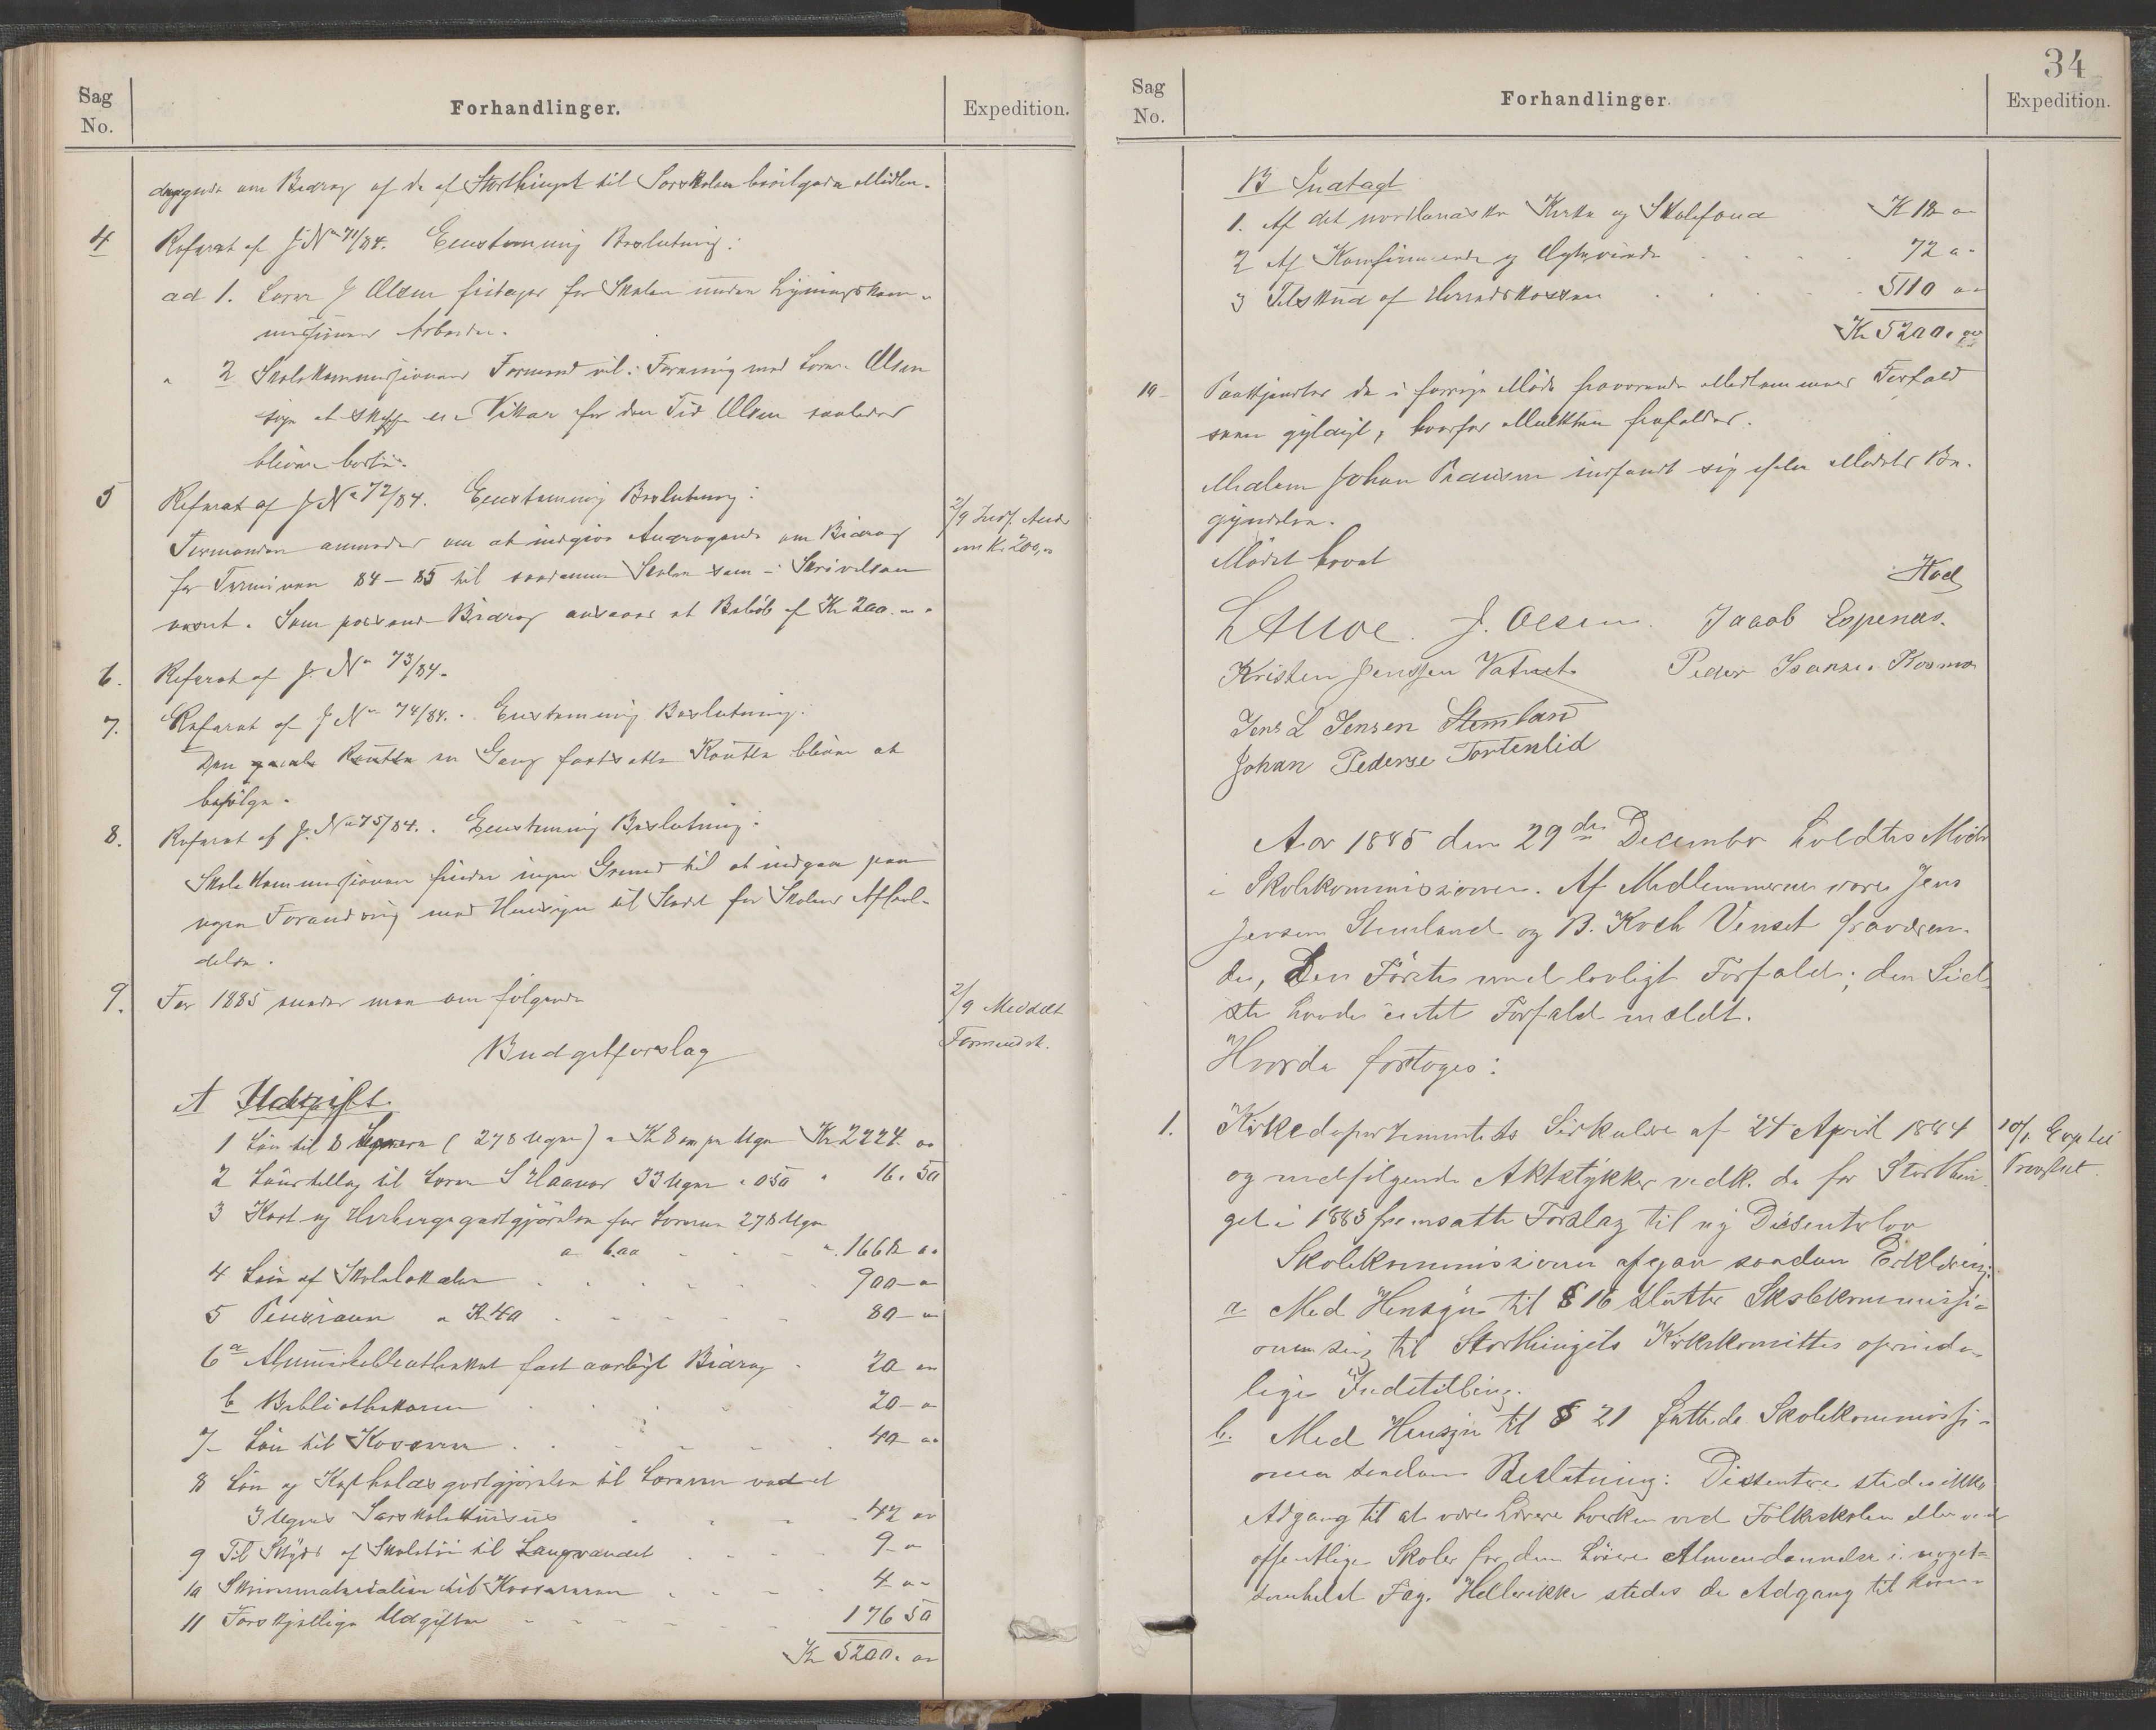 Sag
No.
Forhandlinger.
Expedition.
dragende om Bidrag af de af Storthinget til Sarskolen bevilgede Midler.
4
Referat af J No 71/84. Eenstemmig Beslutning:
ad 1. Lærer J Olsen fritages for Skolen under Ligningskom-
missionens Arbeide.
" 2 Skolekommissionens Formand vil i Forening med Lærer Olsen
søge at skaffe en Vikar for den Tid Olsen saaledes
bliver borte.
5
Referat af J No 72/84. Eenstemmig Beslutning:
2/9 Indf. Andr
om Kr 200,"
Formanden anmodes om at indgive Andragende om Bidrag
for Terminen 84-85 til saadanne Skoler som i Skrivelsen
nævnt. Som passende Bidrag ansaaes et Beløb af Kr 200.00.
6.
Referat af J. No 73/84.
7.
Referat af J No 74/84. Eenstemmig Beslutning:
Den gamle Routte en Gang fastsatte Routte bliver at
befølge.
8.
Referat af J. No 75/84. Eenstemmig Beslutning:
Skolekommissionen finder ingen Grund til at indgaa paa
nogen Forandring med Hensyn til Stedet for Skolens Afhol-
delse.
9.
For 1885 enedes man om følgende
2/9 Meddelt
Formandsk.
Budgetforslag
A Udgift.
1 Løn til 8 Lærere (278 Uger) a Kr 8 00 pr Uge Kr 2224. 00
2 Lønstillæg til Lærer S Haaver 33 Uger a 050 " 16. 50
3 Kost og Herbergegodtgjørelse for Lærerne 278 Uger
a 6.00 " 1668 00
4 Leie af Skolelokaler 900 - 00
5 Pensioner a Kr 40 80 - 00
6a Almuebibliotheket fast aarligt Bidrag 20 00
b Bibliothekaren 20 - 00
7 - Løn til Kasseren 40 00
8 Løn og Kostholdsgodtgjørelse til Læreren ved et
3 Ugers Sarskolekursus 42 00
9 Til Skyds af Skoletøi til Langvandet 9 - 00
10 Skrivematerialier til Kassereren 4 00
11 Forskjellige Udgifter 176 50
Kr 5200. 00
34
Sag
No.
Forhandlinger.
Expedition.
B Indtægt
1. Af det nordlandske Kirke og Skolefond Kr 18 00
2 Af Konfirmerede og Ægteviede 72 00
3 Tilskud af Herredskassen 5110 00
Kr 5200. 00
10 -
Paakjendtes de i forrige Møde fraværende Medlemmers Forfald
som gyldigt, hvorfor Mulkten frafaldes.
Medlem Johan Pedersen indfandt sig efter Mødets Be-
gyndelse.
Mødet hævet
Koch
J. Olsen. Jacob Espenes.
Kristen Jenssen Vatnet Peder Isaksen Kosmo
Jens L Jensen Stemland
Johan Pederse Tortenlid
Aar 1885 den 29de December holdtes Møde
i Skolekommissionen. Af Medlemmerne vare Jens
Jensen Stemland og B. Koch Venset fraværen-
de, Den Første med lovligt Forfald; den Sid-
ste havde intet Forfald meldt.
Hvorda foretoges:
1.
Kirkedepartementets Sirkulære af 24 April 1884
10/1 Exp til
Provstiet.
og medfølgende Aktstykker vedk. de for Storthin-
get i 1883 fremsatte Forslag til ny Dissenterlov
Skolekommissionen afgav saadan Erklæring:
a Med Hensyn til § 16 slutter Skolekommissi-
onen sig til Storthingets Kirkekomittes oprinde-
lige Indstilling.
b. Med Hensyn til § 21 fattede Skolekommissi-
onen saadan Beslutning: Dissentere stedes ikke
Adgang til at være Lærere hverken ved Folkeskolen eller ved
offentlige Skoler for den høiere Almendannelse i noget-
somhelst Fag. Hellerikke stedes de Adgang til